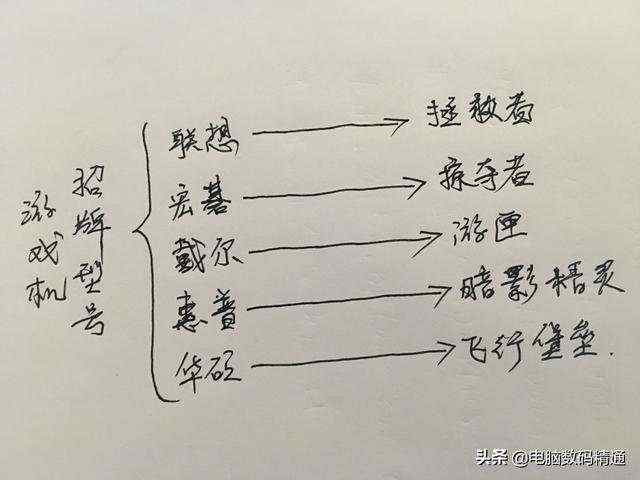 游戏机
招牌型号
联想 → 拯救者
宏碁 → 掠夺者
戴尔 → 游匣
惠普 → 暗影精灵
华硕 → 飞行堡垒.
头条 @电脑数码精通